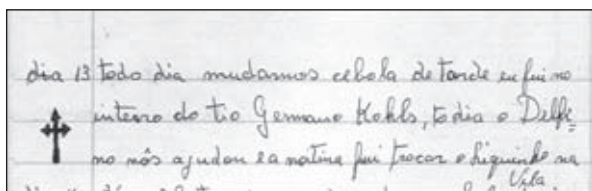 dia 13 todo dia mudamos cebola de tarde eu fui no
interro do tio Germano Kohls, todia o Delfi=
no nós ajudou e a notina fui trocar o higuinho na
Vila